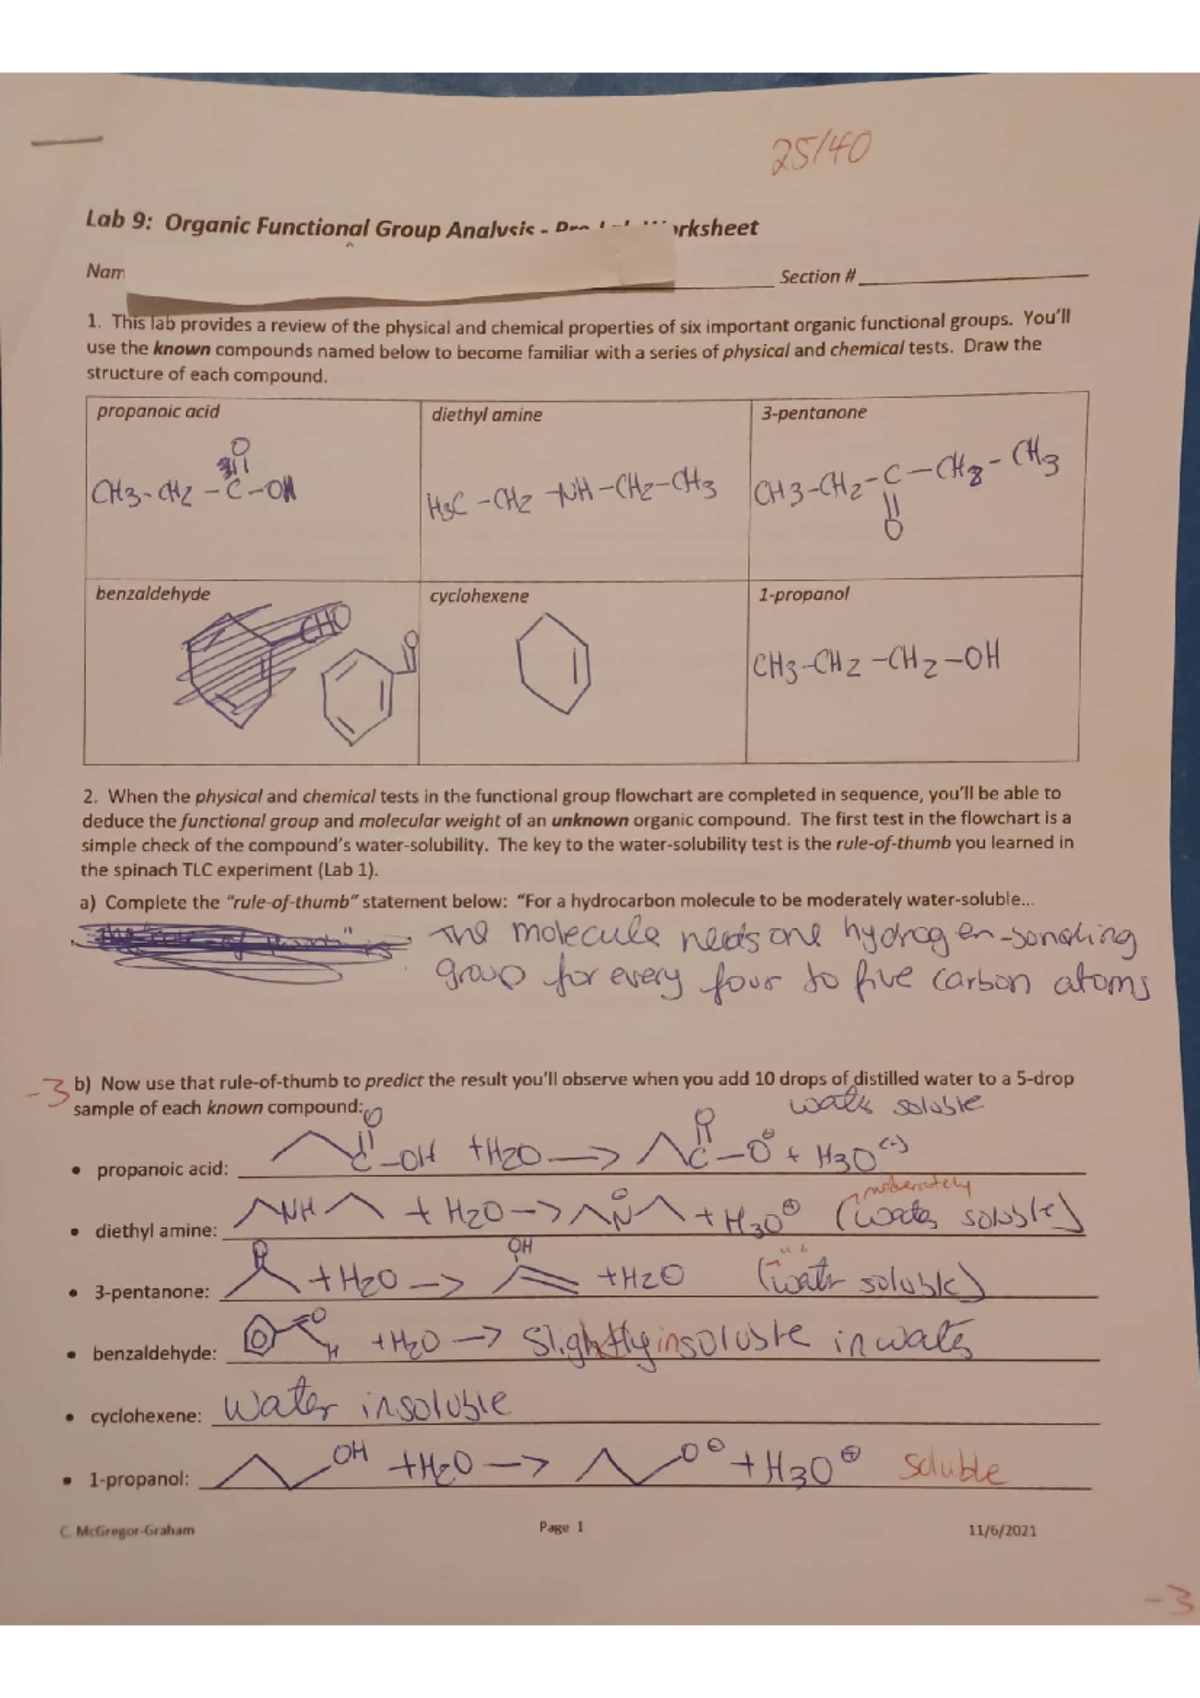 25/40
Lab 9: Organic Functional Group Analysis - Pre-Lab Worksheet
Nam
Section #
1. This lab provides a review of the physical and chemical properties of six important organic functional groups. You'll
use the known compounds named below to become familiar with a series of physical and chemical tests. Draw the
structure of each compound.
propanoic acid
diethyl amine
3-pentanone
O
CH3-CH2-C-OH
H3C-CH2-NH-CH2-CH3
CH3-CH2-C-CH2-CH3
O
benzaldehyde
cyclohexene
1-propanol
CHO
O
CH3-CH2-CH2-OH
2. When the physical and chemical tests in the functional group flowchart are completed in sequence, you'll be able to
deduce the functional group and molecular weight of an unknown organic compound. The first test in the flowchart is a
simple check of the compound's water-solubility. The key to the water-solubility test is the rule-of-thumb you learned in
the spinach TLC experiment (Lab 1).
a) Complete the "rule-of-thumb" statement below: "For a hydrocarbon molecule to be moderately water-soluble...
The molecule needs one hydrogen-bonding
group for every four to five carbon atoms
-3 b) Now use that rule-of-thumb to predict the result you'll observe when you add 10 drops of distilled water to a 5-drop
sample of each known compound:
water soluble
• propanoic acid: O C-OH +H2O → O C-O⊖ + H3O(+)
moderately
• diethyl amine: NH + H2O → N + H3O⊕ (water soluble)
• 3-pentanone: O +H2O → OH +H2O " " (water soluble)
• benzaldehyde: O H +H2O → slightly insoluble in water
• cyclohexene: water insoluble
• 1-propanol: OH +H2O → O⊖ +H3O⊕ soluble
C. McGregor-Graham
Page 1
11/6/2021
-3